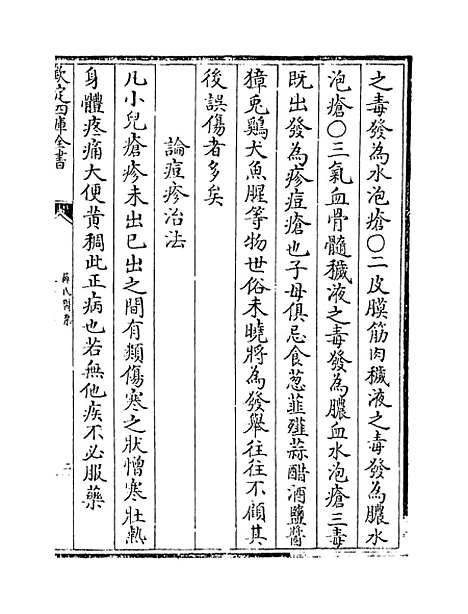 之毒發為水泡瘡〇二皮膜筋肉穢液之毒發為膿水
泡瘡〇三氣血骨髓穢液之毒發為膿血水泡瘡三毒
既出發為疹痘瘡也子母俱忌食葱韮薤蒜醋酒鹽醬
獐兎鷄犬魚腥等物世俗未曉將為發舉往往不顧其
後誤傷者多矣
論痘疹治法
凡小兒瘡疹未出已出之間有類傷寒之狀憎寒壯熱
身體疼痛大便黄稠此正病也若無他疾不必服藥
欽定四庫全書
薛氏醫案
二